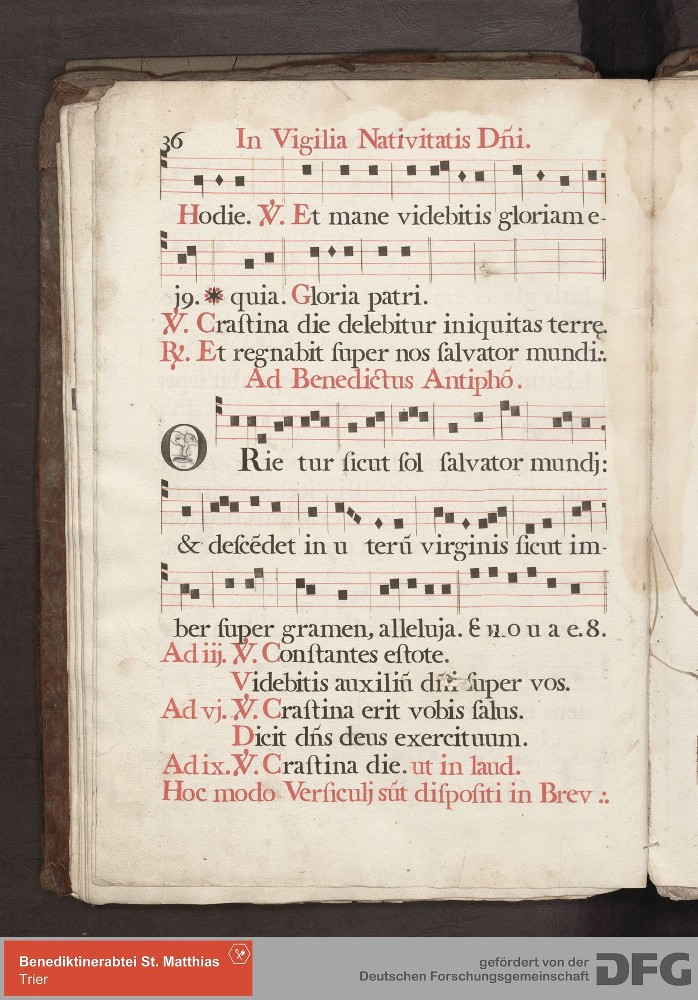 36 In Vigilia Nativitatis Dñi.
Hodie. ℣. Et mane videbitis gloriam e-
j9. ✱ quia. Gloria patri.
℣. Craſtina die delebitur iniquitas terrę.
℟. Et regnabit ſuper nos ſalvator mundi:.
Ad Benedictus Antiphō.
ORie tur ſicut ſol ſalvator mundj:
& deſcēdet in u terū virginis ſicut im-
ber ſuper gramen, alleluja. E u o u a e. 8.
Ad iij. ℣. Conſtantes eſtote.
Videbitis auxiliū dñi. ſuper vos.
Ad vj. ℣. Craſtina erit vobis ſalus.
Dicit dñs deus exercituum.
Ad ix. ℣. Craſtina die. ut in laud.
Hoc modo Verſiculj sūt diſpoſiti in Brev .:.
Benediktinerabtei St. Matthias
Trier
gefördert von der
Deutschen Forschungsgemeinschaft DFG